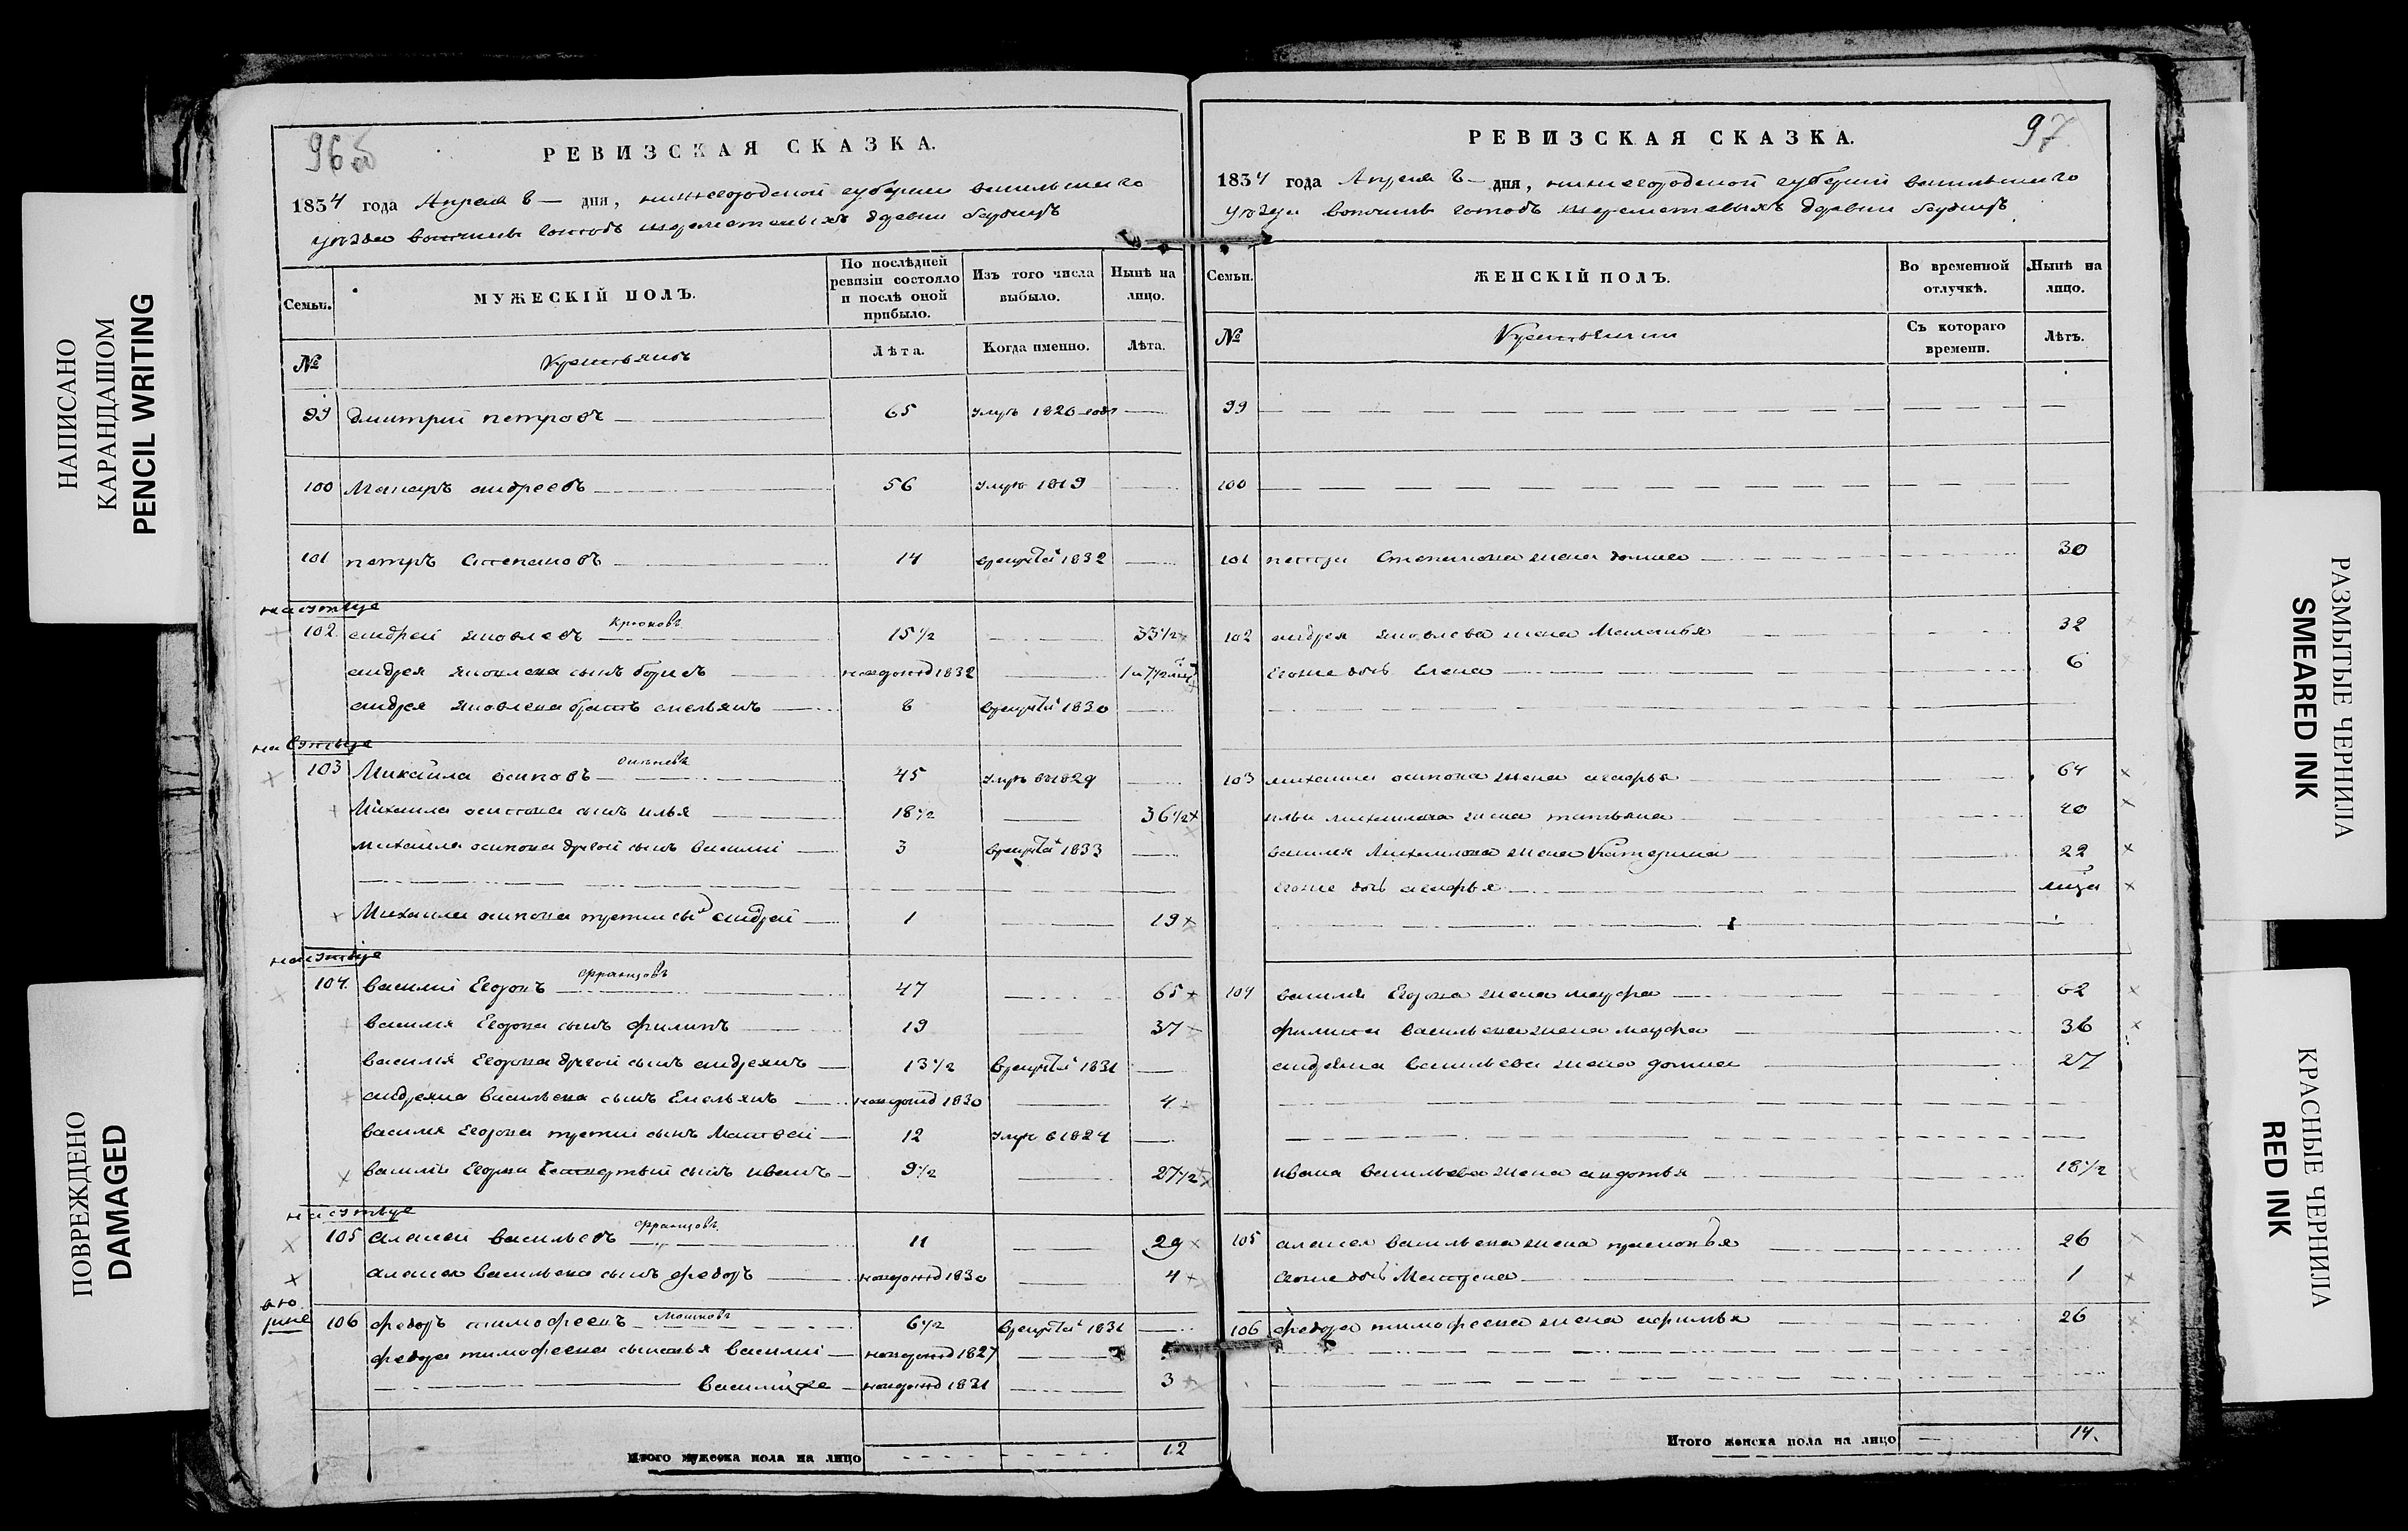 96об
РЕВИЗСКАЯ СКАЗКА.
1834 года Апреля 8 — дня, нижегородской губернии васильскаго
уезда вотчины господъ шереметевыхъ дервни
Семьи. МУЖЕСКІЙ ПОЛЪ. По послѣдней ревизіи состояло и послѣ оной прибыло. Изъ того числа выбыло. Нынѣ на лицо.
№ Крестьянъ Лѣта. Когда именно. Лѣта.
99 дмитрий петровъ 65 умръ 1826 года
100 Макаръ андреевъ 56 умръ 1819
101 петръ Степановъ 14 врекруты 1832
102. андрей яковлевъ Крюковъ 15½ 33½
андрея яковлева сынъ борисъ новорожд 1832
андрея яковлева братъ емельянъ 8 врекруты 1830
103 Михайла осиповъ 45 умръ в 1829
Михаила осипова сынъ илья 18½ 36½
михайла осипова другой сынъ василий 3 врекруты 1833
Михаила осипова третий сынъ андрей 1 19
104. василий Егоровъ Францовъ 47 65
василия Егорова сынъ филипъ 19 37
василия Егорова другой сынъ андреянъ 13½ врекруты 1831
андреяна васильева сынъ Емельянъ новорожд 1830 4
василия Егорова третий сынъ Матвей 12 умръ в 1824
василия Егорова Четвертый сынъ иванъ 9½ 27½
105 алексей васильевъ Францовъ 11 29
алексея васильева сынъ федоръ новорожд 1830 4
106 федоръ тимофеевъ Мошковъ 6½ врекруты 1831
федора тимофеева сыновья василий новорожд 1827
василий же новорожд 1831 3
Итого мужеска пола на лицо 12
97
РЕВИЗСКАЯ СКАЗКА.
1834 года Апреля 8 — дня, нижегородской губерний васильскаго
уезда вотчины господъ шереметевыхъ дервни
Семьи. ЖЕНСКІЙ ПОЛЪ. Во временной отлучкѣ. Нынѣ на лицо.
№ Крестьянки Съ котораго времени. Лѣтъ.
99
100
101 петра Степанова жена домна 30
102 андрея яковлева жена Меланья 32
Егоже дочь Елена 6
103 михаила осипова жена агафья 64
ильи михайлова жена татьяна 40
василия Михаилова жена Катерина 22
Егоже дочь агафья
104 василия Егорова жена марфа 62
филипа васильева жена марфа 36
андреяна васильева жена домна 27
ивана васильева жена авдотья 18½
105 алексея васильева жена прасковья 26
Егоже дочь Матрена 1
106 федора тимофеева жена 26
Итого женска пола на лицо 14.
НАПИСАНО
КАРАНДАШОМ
PENCIL WRITING
ПОВРЕЖДЕНО
DAMAGED
РАЗМЫТЫЕ ЧЕРНИЛА
SMEARED INK
КРАСНЫЕ ЧЕРНИЛА
RED INK